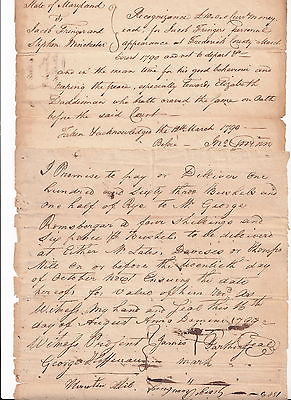 State of Maryland
vs
Jacob Fringer and
Stephen Winchester
Recognizance £ Curt money,
each, for Jacob Fringers personal
appearance at Frederick County March
Court 1790 and not to depart &c
and in the mean time for his good behaviour and
keeping the peace, especially towards Elizabeth
Duddeman who hath craved the same on Oath
before the said Court
Taken & acknowledged the 18th March 1790
Before
I Promise to pay or Deliver one
hundred and Sixty three Bushels and
one half of Rye to Mr George
Ramsbergar a four Shillings and
Six pence Pr Bushel to be deliver'd
at Either Mr or
Mill On or before the twentieth day
of October Next Ensuing the date
hereof for Value of him Rec'd as
Witness my hand and Seal this 16th
day of August Anno Domini 1787
Witness Present James Farthing Seal
George mark